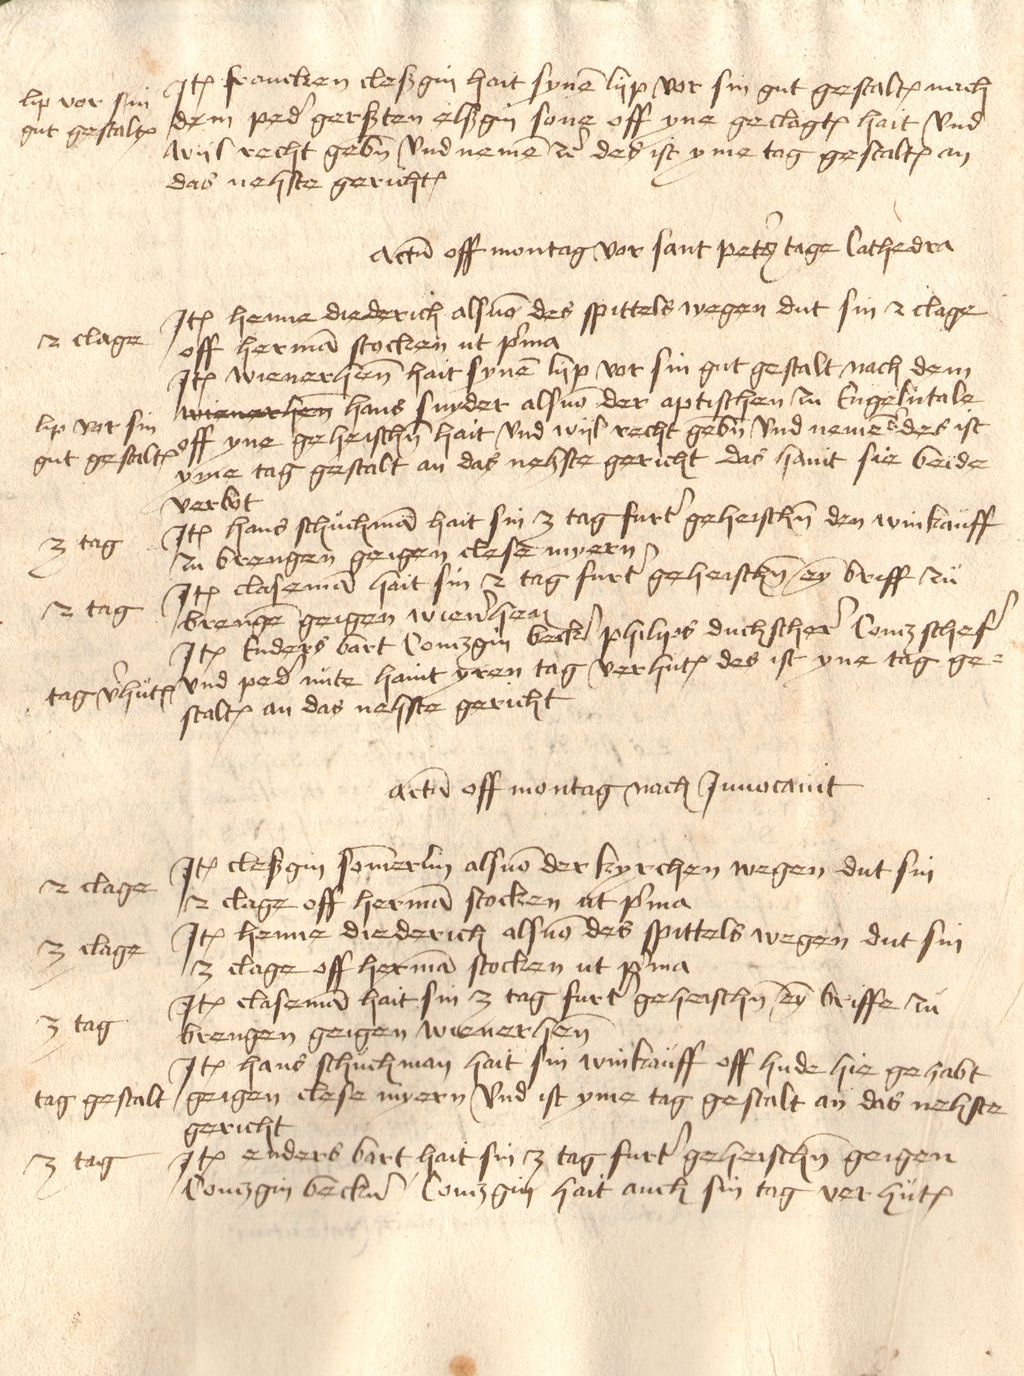 lip vor sin
gut gestalt
Jt francken cleßgin hait syne lijp vor sin gut gestalt nach
dem peder gerßten elßgin sone off yne geclagt hait vnd
wijl recht gebn vnd neme etc des ist yme tag gestalt an
das nehste gericht
Actu off montag vor sant peters tage Cathedra
2 clage
Jt henne diederich alsuo des spittels wegen dut sin 2 clage
off herma stocken ut pma
lip vor sin
gut gestalt
Jt wienerhen hait syne lijp vor sin gut gestalt nach dem
wienerhen hans snyder alsuo der aptischen zu Engelntale
off yne geheischn hait vnd wijl recht gebn vnd neme des ist
yme tag gestalt an das nehste gericht das hant sie beide
verbot
3 tag
Jt hans schuchma hait sin 3 tag furt geheischn den winkauff
zu brengen geigen clese myern
2 tag
Jt clasema hait sin 2 tag furt geheischn ey briff zu
brenge geigen wienerhen
tag vhut
Jt Enders bart Contzgin becker philips duchscherer Contz schefer
vnd peder hant yren tag verhut des ist yne tag ge=
stalt an das nehste gericht
Actu off montag nach Jnuocauit
2 clage
Jt cleßgin somerlin alsuo der kyrchen wegen dut sin
2 clage off herma stocken ut pma
3 clage
Jt henne diederich alsuo des spittels wegen dut sin
3 clage off herma stocken ut pma
3 tag
Jt clasema hait sin 3 tag furt geheischn ey briffe zu
brengen geigen wienerhen
tag gestalt
Jt hans schuchman hait sin winkauff off hude hie gehabt
geigen clese myern vnd ist yme tag gestalt an das nehste
gericht
3 tag
Jt enders bart hait sin 3 tag furt geheischn geigen
Contzgin becker Contzgin hait auch sin tag verhut